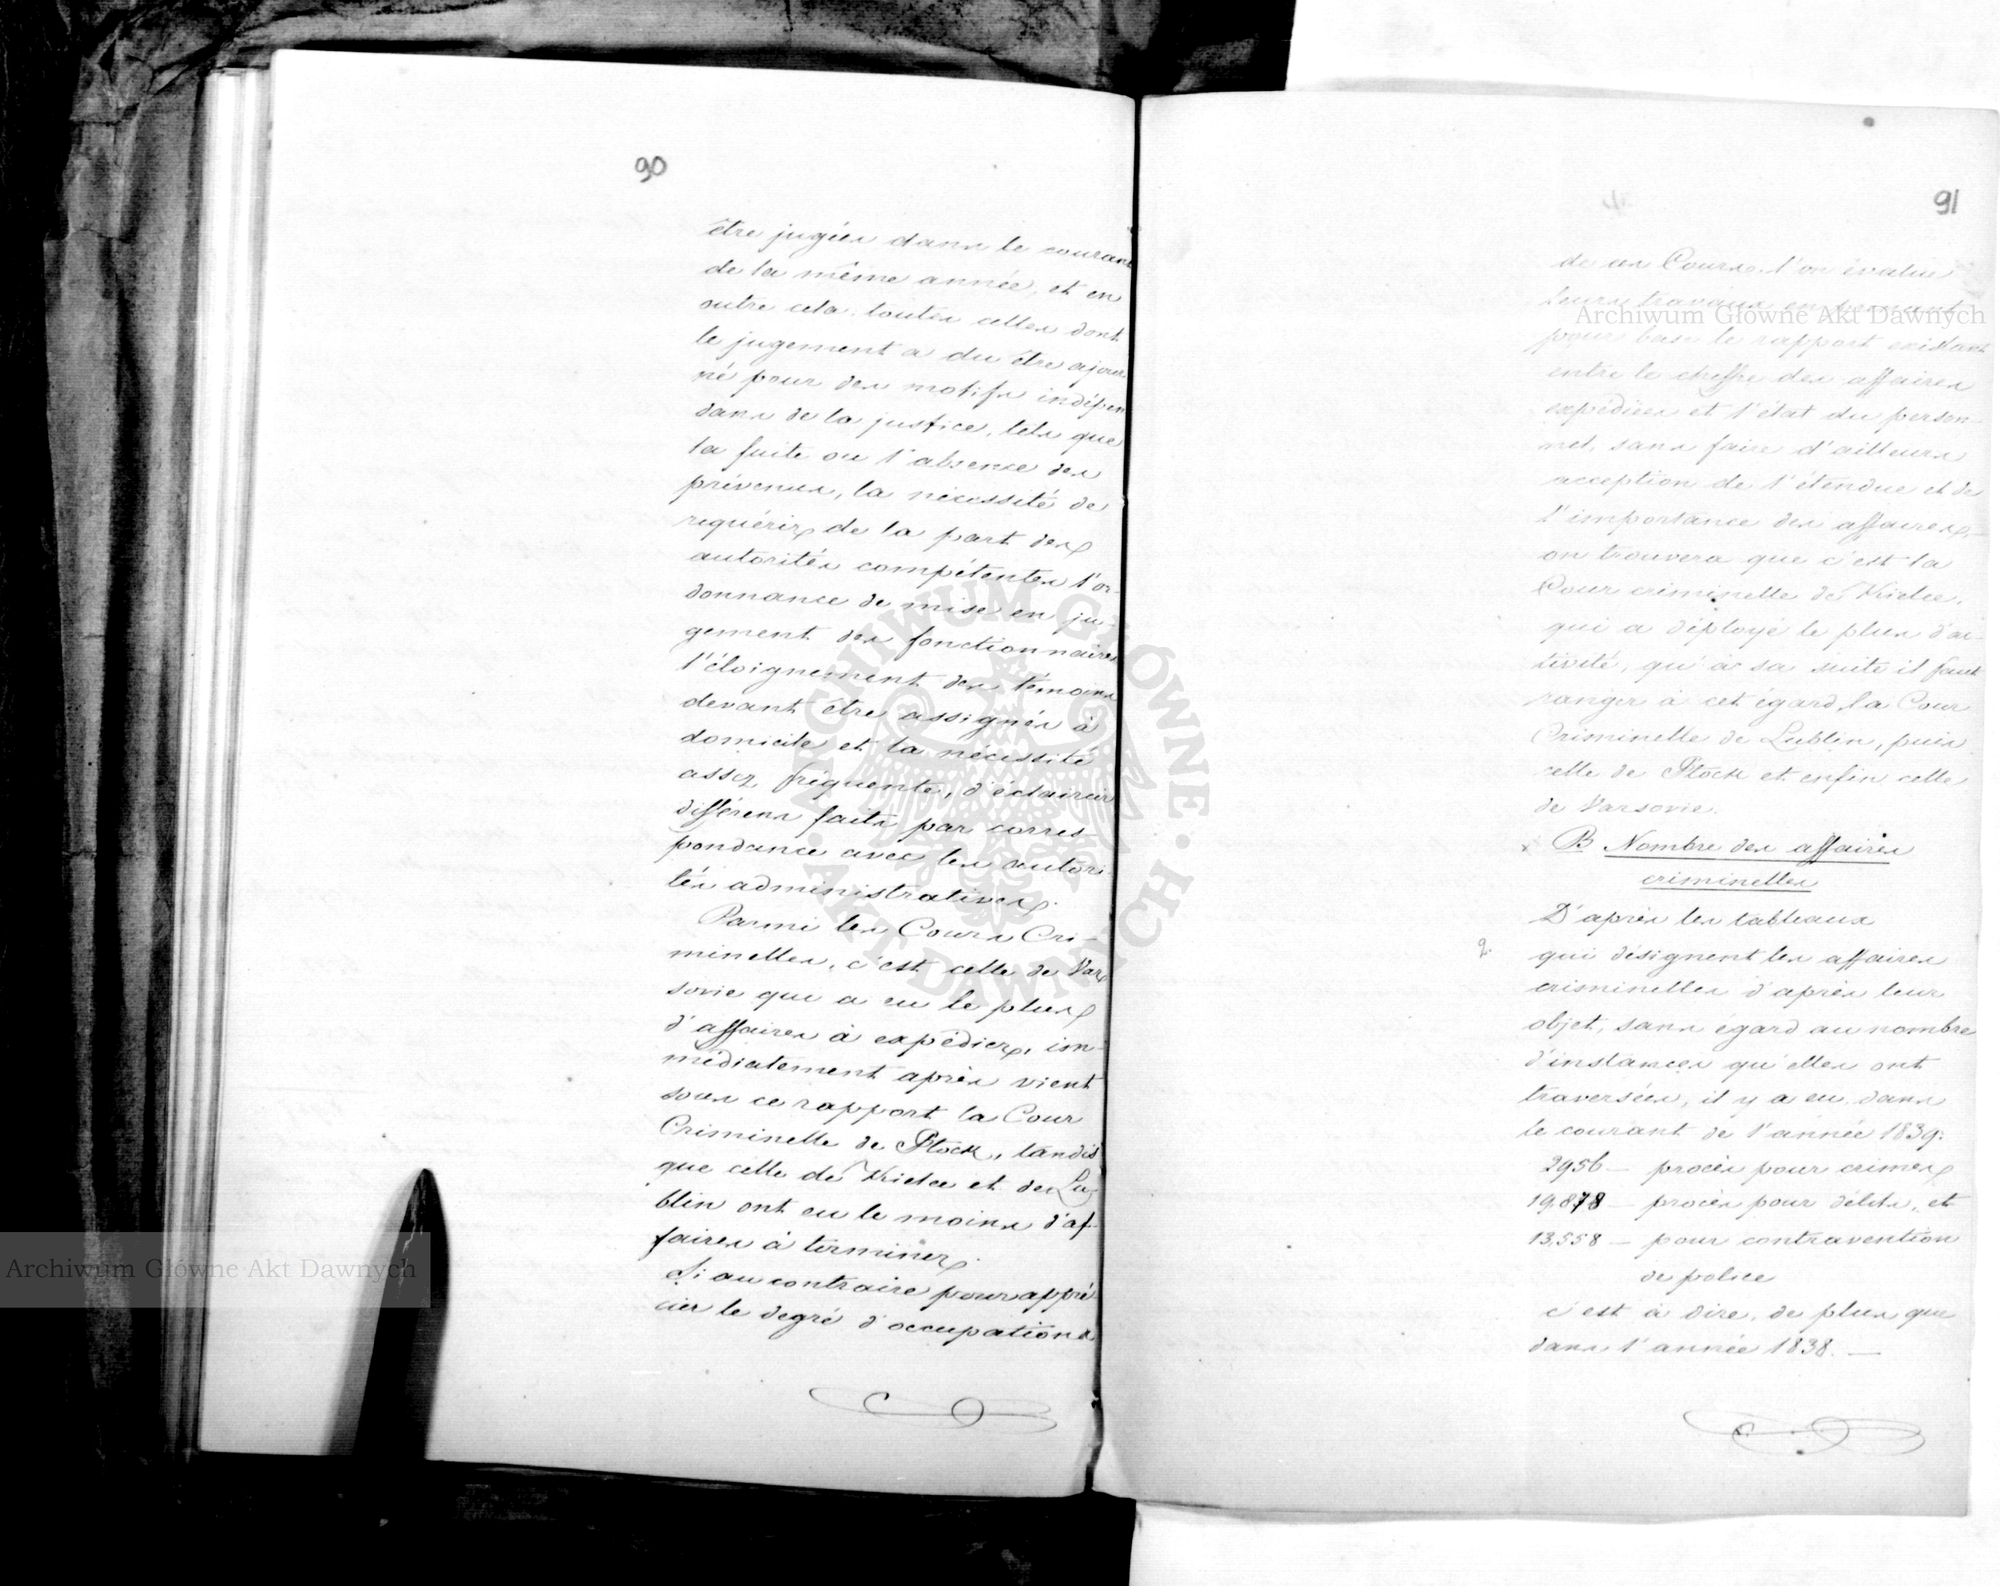 90
être jugées dans le courant
de la même année, et en
outre cela, toutes celles dont
le jugement a du être ajour
né pour des motifs indépen
dans de la justice, tels que
la fuite ou l'absence des
prévenus, la nécessité de
requérir de la part des
autorités compétentes l'or
donnance de mise en ju-
gement des fonctionnaires
l'éloignement des témoins
devant être assignés à
domicile et la nécessité
assez fréquente, d'éclaircir
différens faits par corres-
pondance avec les autori
tés administratives.
Parmi les Cours Cri-
minelles, c'est celle de Var
sovie qui a eu le plus
d'affaires à expédier, im-
médiatement après vient
sous ce rapport la Cour
Criminelle de Plock, tandis
que celle de Kielce et de Lu
blin ont eu le moins d'af-
faires à terminer.
Si au contraire pour appré
cier le degré d'occupations
91
de ces Cours, l'on évalue
leurs travaux en prenant
pour base le rapport existant
entre le chiffre des affaires
expédiées et l'état du person-
nel, sans faire d'ailleurs
acception de l'étendue et de
l'importance des affaires,
on trouvera que c'est la
Cour criminelle de Kielce,
qui a déployé le plus d'ac-
tivité, qu'à sa suite il faut
ranger à cet égard, la Cour
Criminelle de Lublin, puis
celle de Plock et enfin celle
de Varsovie.
B Nombre des affaires
criminelles
D'après les tableaux
2. qui désignent les affaires
criminelles d'après leur
objet, sans égard au nombre
d'instances qu'elles ont
traversées, il y a eu dans
le courant de l'année 1839:
2956 – procès pour crimes
19.878 – procès pour délits, et
13.558 – pour contravention
de police
c'est à dire, de plus que
dans l'année 1838. —
Archiwum Główne Akt Dawnych
Archiwum Główne Akt Dawnych
ARCHIWUM GŁÓWNE AKT DAWNYCH